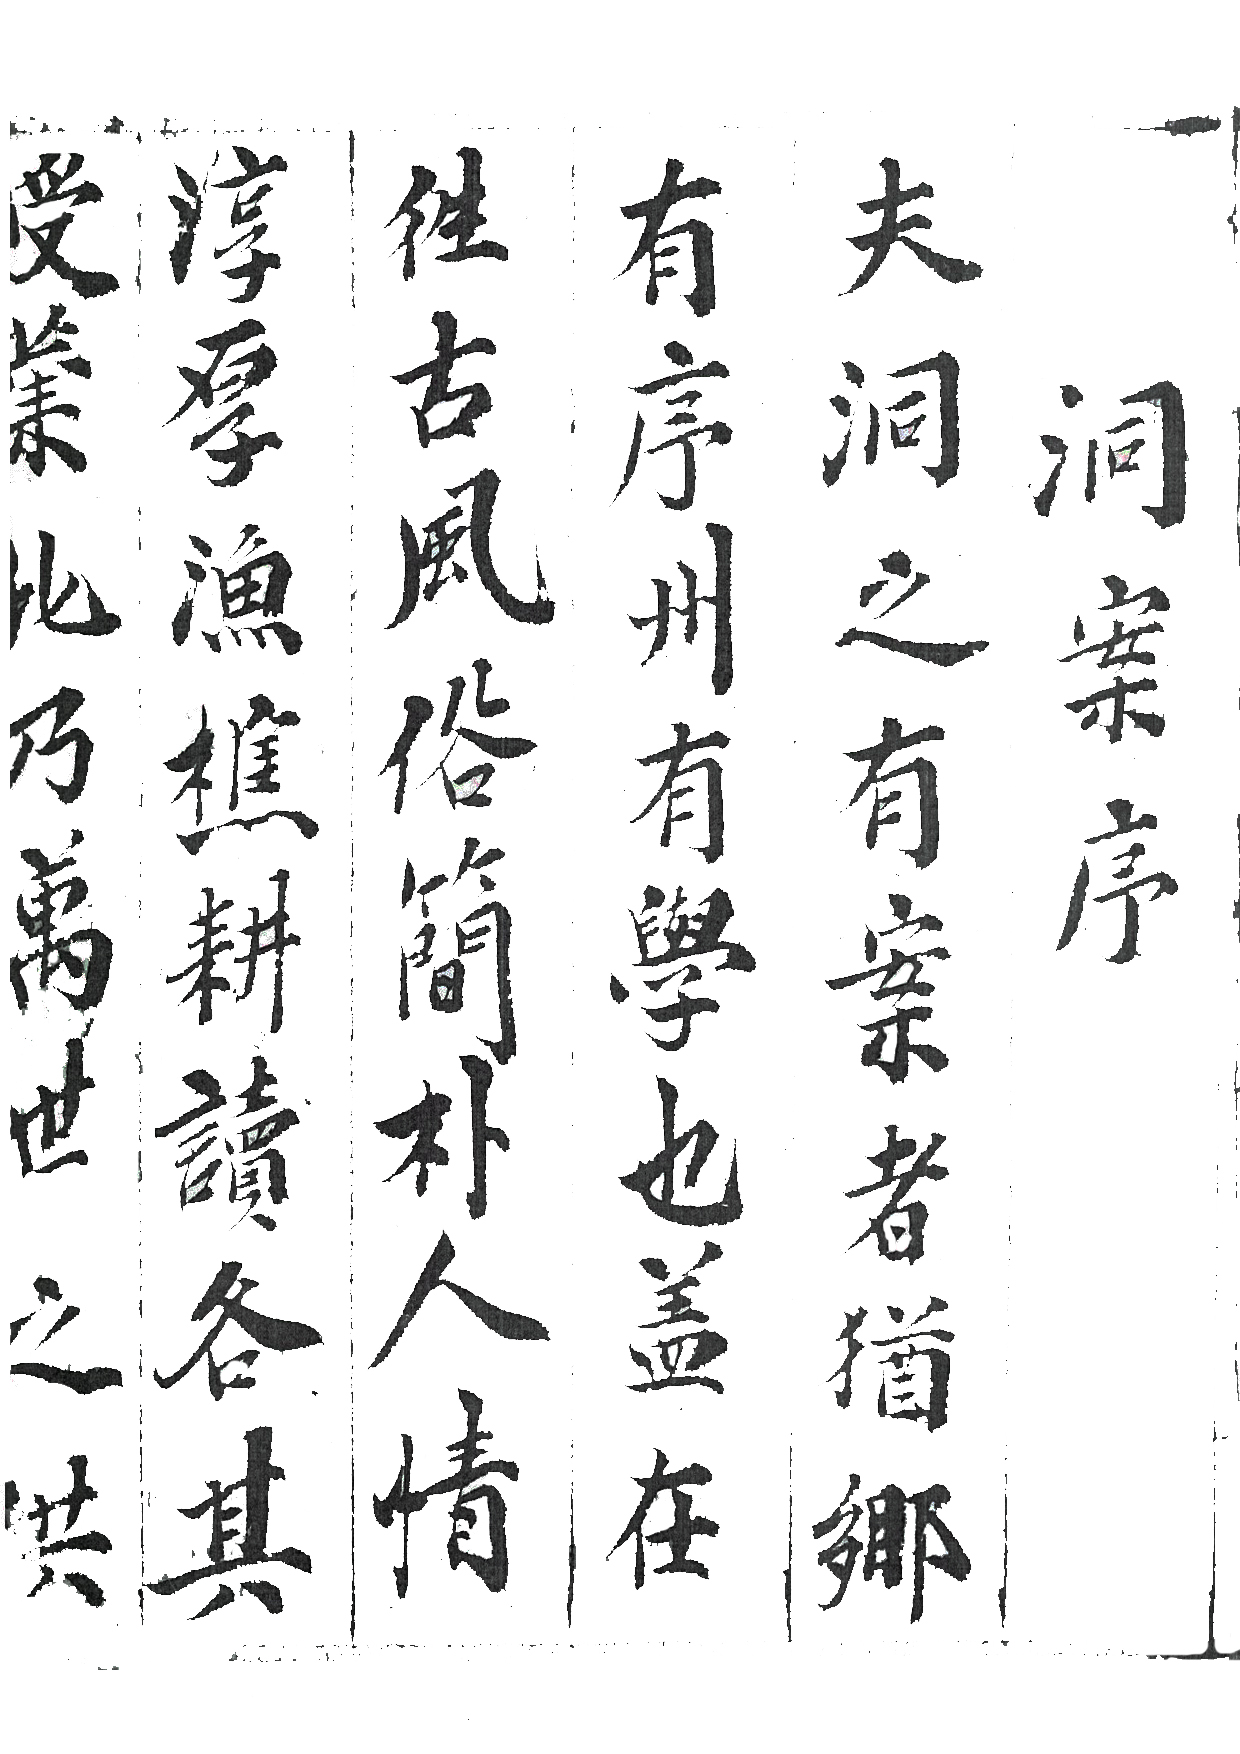 洞案序
夫洞之有案者猶鄉
有序州有學也盖在
徃古風俗簡朴人情
淳厚漁樵耕讀各其
受業此乃萬世之